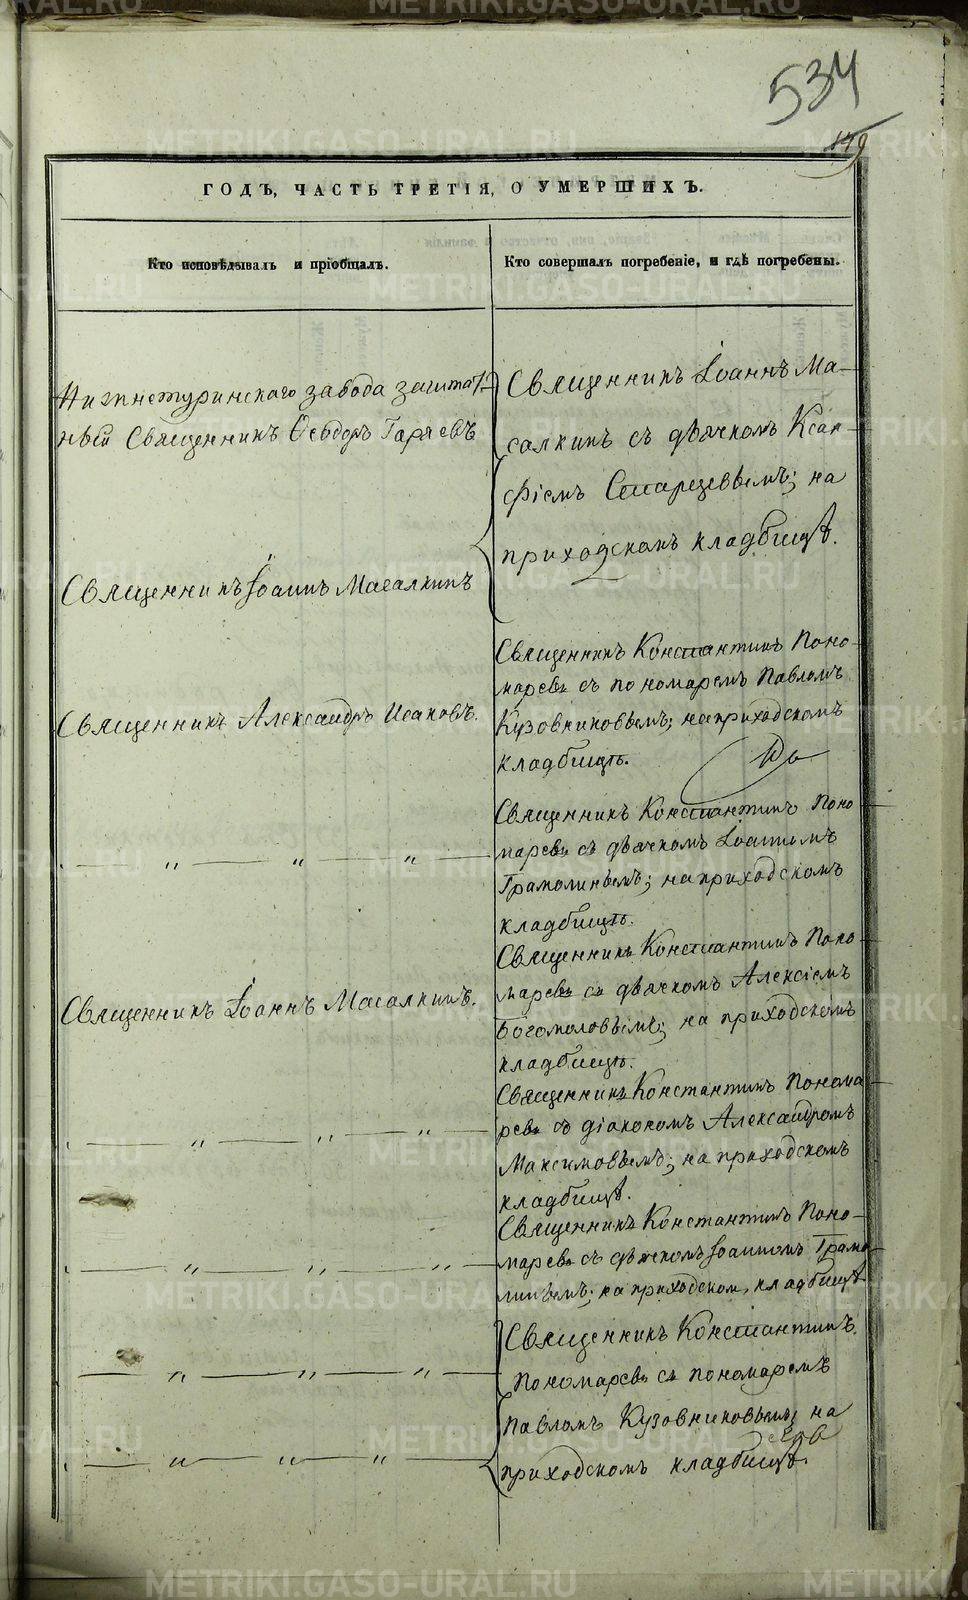 534
149
ГОДЪ, ЧАСТЬ ТРЕТІЯ, О УМЕРШИХЪ.
Кто исповѣдывалъ и пріобщалъ.
Кто совершалъ погребеніе, и гдѣ погребены.
Нижнетуринскаго завода заштат-
ный Священникъ Ѳеодоръ Гаряевъ
Священникъ Іоаннъ Масалкинъ
Священникъ Александръ Исаковъ.
„ „ „
Священникъ Іоаннъ Масалкинъ.
„ „ „
„ „ „
„ „ „
„ „ „
Священникъ Іоаннъ Ма-
салкинъ съ дьячкомъ Ксан-
фіемъ Старцевымъ; на
приходскомъ кладбищѣ.
Священникъ Константинъ Поно-
маревъ съ пономаремъ Павломъ
Кузовниковымъ; на приходскомъ
кладбищѣ.
Священникъ Константинъ Поно-
маревъ съ дьячкомъ Іоанномъ
Грамолинымъ; на приходскомъ
кладбищѣ.
Священникъ Константинъ Поно-
маревъ съ дьячкомъ Алексіемъ
Богомоловымъ; на приходскомъ
кладбищѣ.
Священникъ Константинъ Понома-
ревъ съ діакономъ Александромъ
Максимовымъ; на приходскомъ
кладбищѣ.
Священникъ Константинъ Поно-
маревъ съ дьячкомъ Іоанномъ Грамо-
линымъ; на приходском, кладбищѣ
Священникъ Константинъ
Пономаревъ съ пономаремъ
Павломъ Кузовниковымъ; на
приходскомъ кладбищѣ.
METRIKI.GASO-URAL.RU